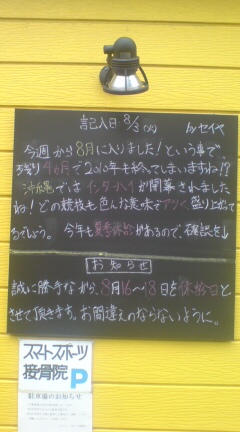 記入日 8/3(火) by セイヤ
今週から8月に入りました!という事で。
残り4ヵ月で2010年も終ってしまいますね!?
沖縄ではインターハイが開幕されました
ね!どの競技も色んな意味でアツく盛り上がって
るでしょう。今年も夏季休診があるので、確認を↓
お知らせ
誠に勝手ながら、8月16〜18日を休診日と
させて頂きます。お間違えのならないように。
スマートスポーツ
接骨院 P
駐車場のお知らせ